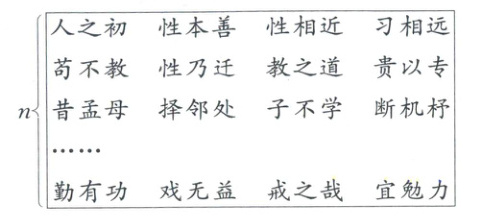 人之初 性本善 性相近 习相远
苟不教 性乃迁 教之道 贵以专
n 昔孟母 择邻处 子不学 断机杼
……
勤有功 戏无益 戒之哉 宜勉力